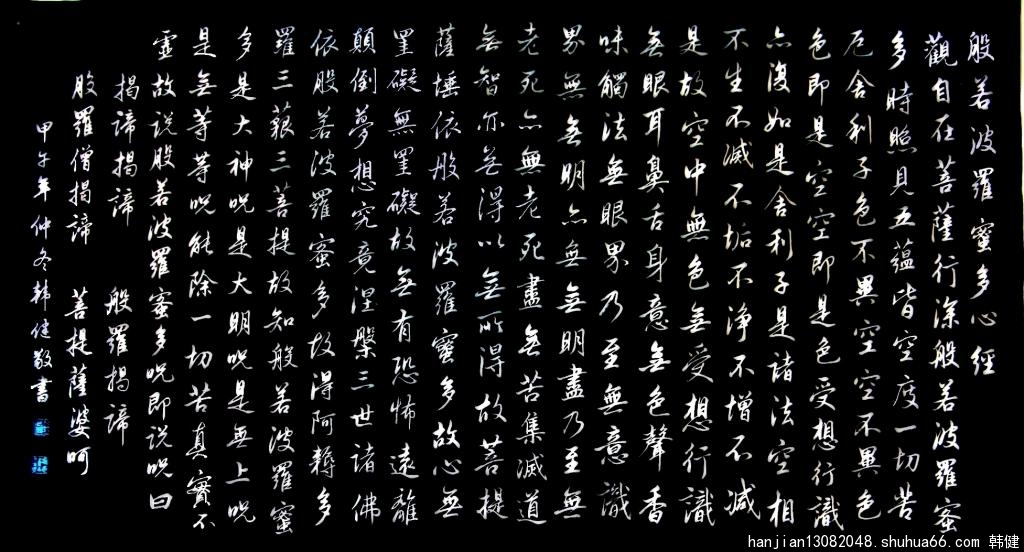 般若波羅蜜多心經
觀自在菩薩行深般若波羅蜜
多時照見五蘊皆空度一切苦
厄舍利子色不異空空不異色
色即是空空即是色受想行識
亦復如是舍利子是諸法空相
不生不滅不垢不淨不增不減
是故空中無色無受想行識
無眼耳鼻舌身意無色聲香
味觸法無眼界乃至無意識
界無無明亦無無明盡乃至無
老死亦無老死盡無苦集滅道
無智亦無得以無所得故菩提
薩埵依般若波羅蜜多故心無
罣礙無罣礙故無有恐怖遠離
顛倒夢想究竟涅槃三世諸佛
依般若波羅蜜多故得阿耨多
羅三藐三菩提故知般若波羅蜜
多是大神咒是大明咒是無上咒
是無等等咒能除一切苦真實不
虛故說般若波羅蜜多咒即說咒曰
揭諦揭諦 般羅揭諦
般羅僧揭諦 菩提薩婆呵
甲午年仲冬韓健敬書
hanjian13082048.shuhua66.com 韩健